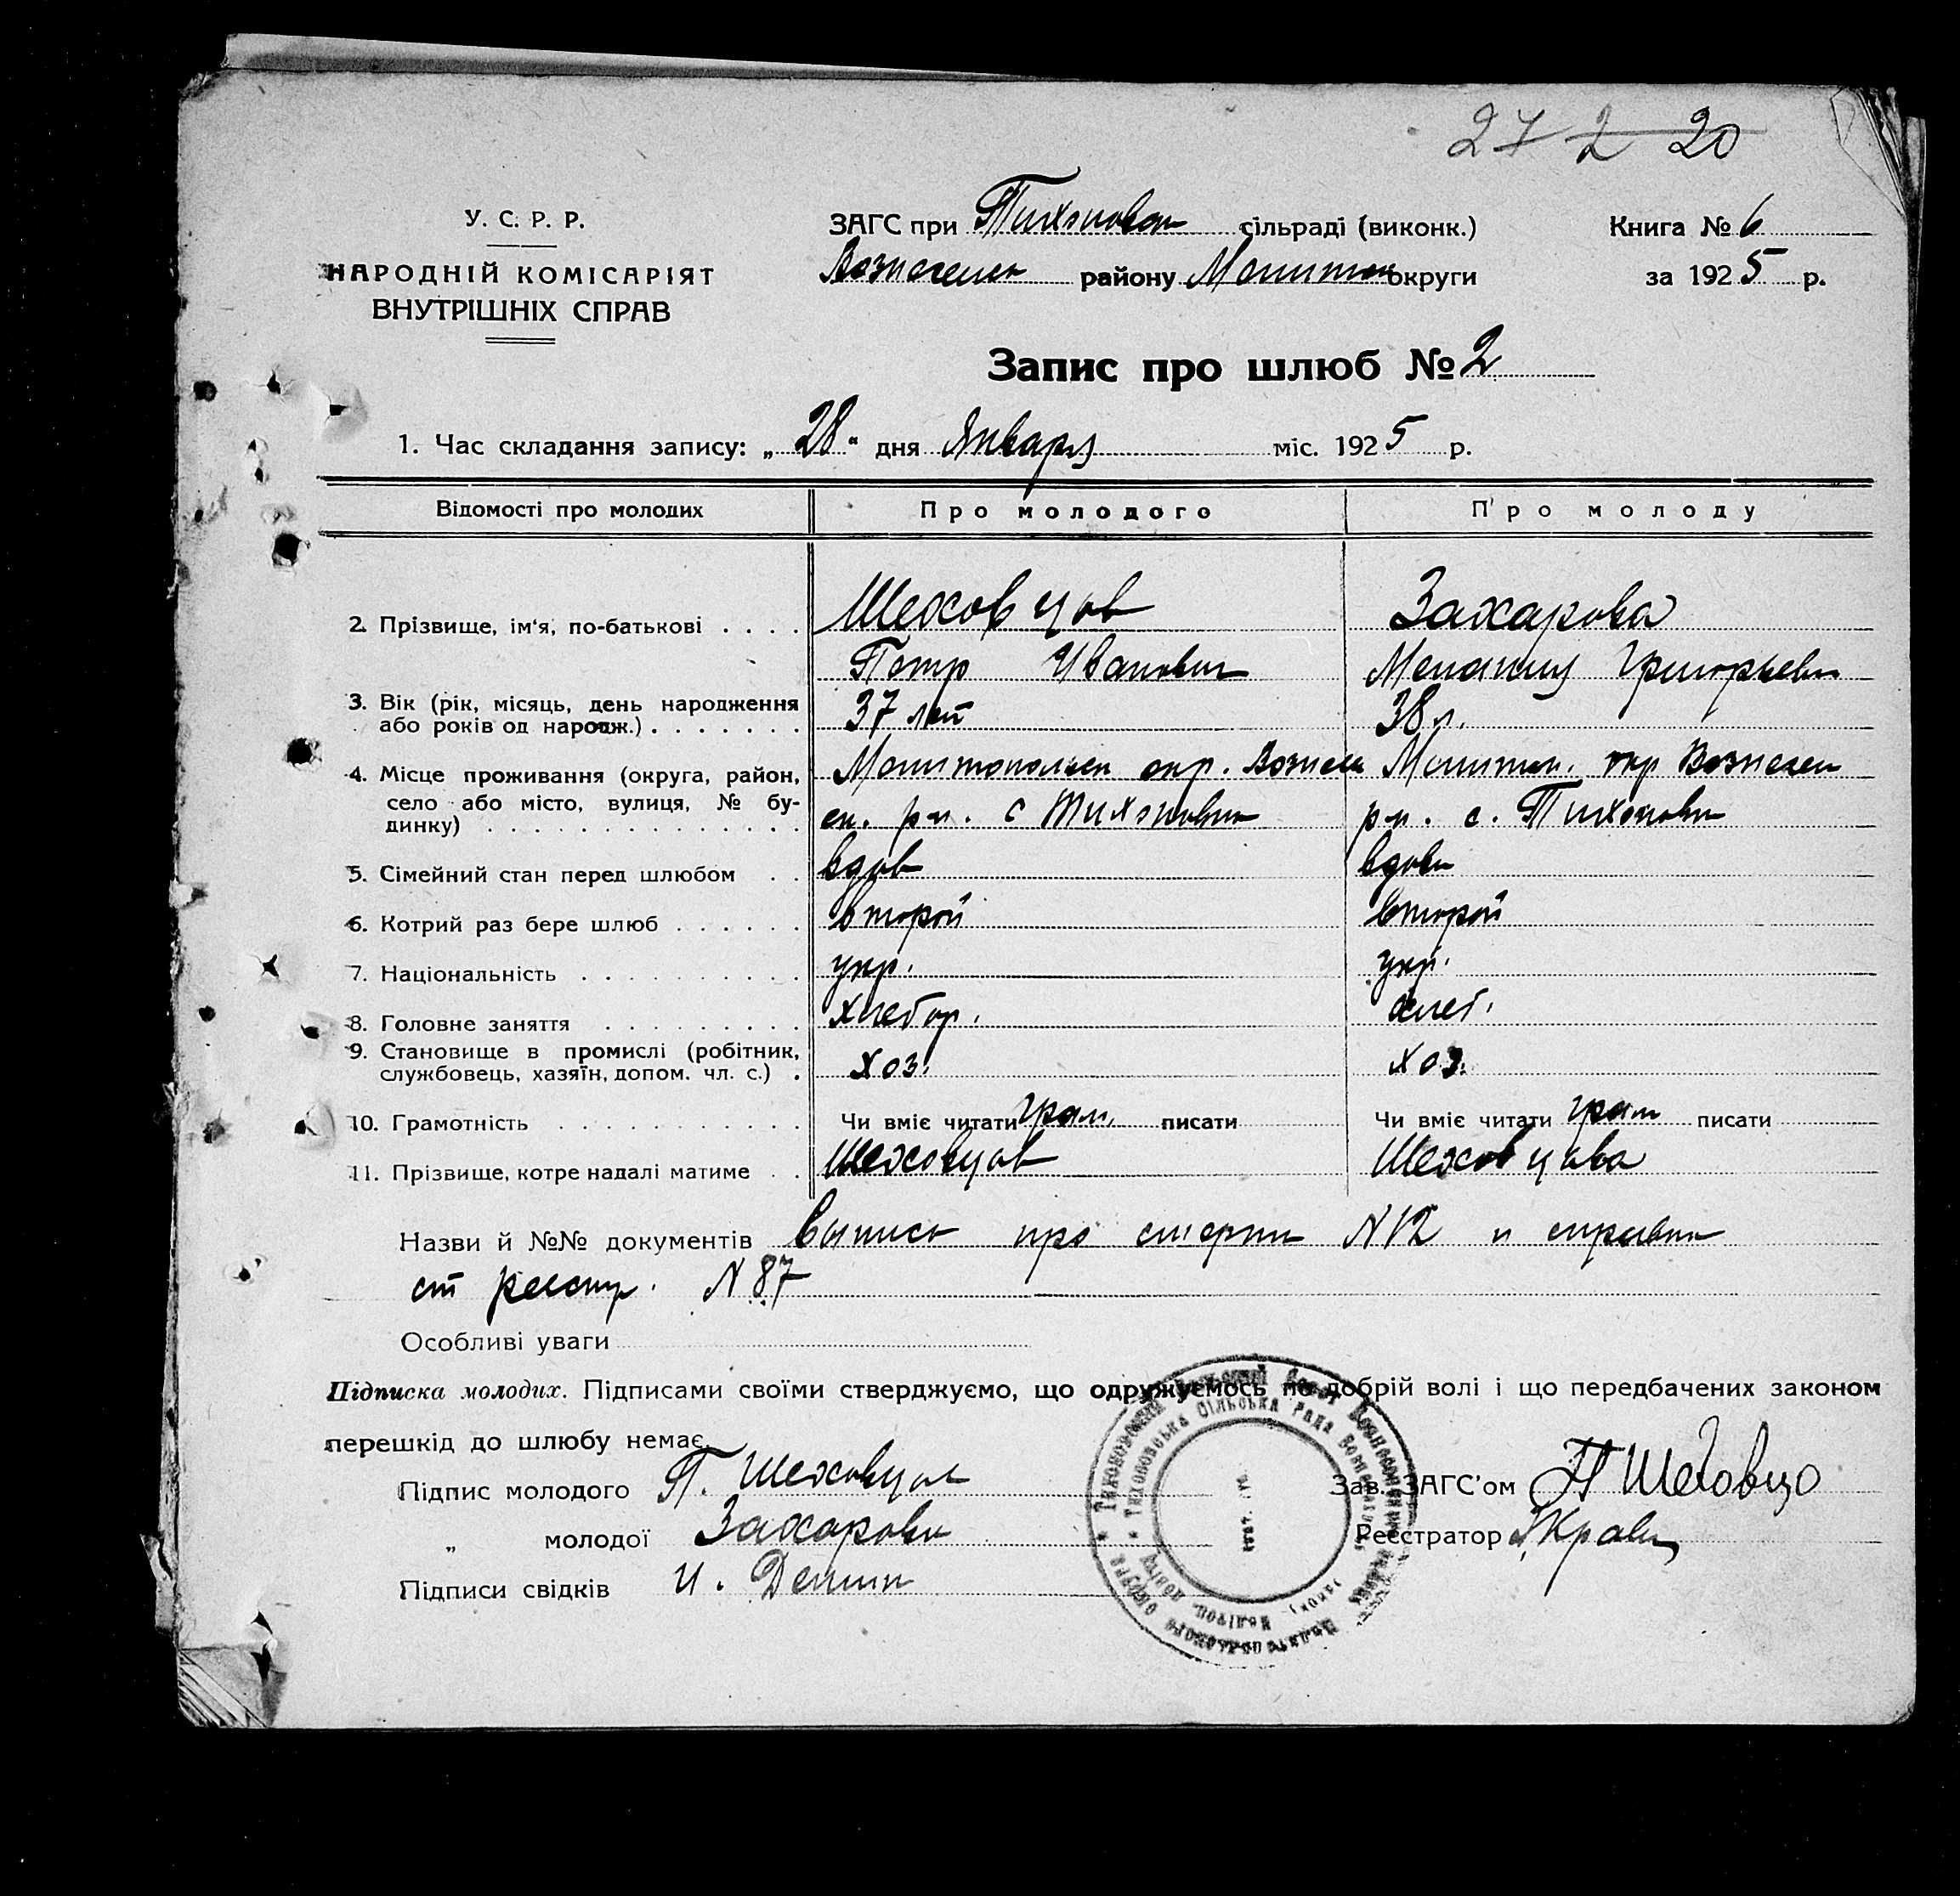 27 2 20
У. С. Р. Р.
НАРОДНІЙ КОМІСАРІЯТ
ВНУТРІШНІХ СПРАВ
ЗАГС при Тихонован сільраді (виконк.)
Вознесенск району Мелитоп округи
Книга № 6
за 1925 р.
Запис про шлюб № 2
1. Час складання запису: „28" дня Января міс. 1925 р.
Відомості про молодих Про молодого Про молоду
2. Прізвище, ім'я, по-батькові . . . . Шеховцов Захарова
Петр Иванович Григорьевн
3. Вік (рік, місяць, день народження 37 лет 38 л.
або років од народж.) . . . . . . .
4. Місце проживання (округа, район, Мелитопольск окр. Вознесен Мелитоп. окр Вознесен
село або місто, вулиця, № бу- ск. р-н. с Тихоновка р-н. с. Тихоновка
динку) . . . . . . . . . . . . . .
5. Сімейний стан перед шлюбом . . вдов вдова
6. Котрий раз бере шлюб . . . . . . второй второй
7. Національність . . . . . . . . . . укр. укр.
8. Головне заняття . . . . . . . . . хлебор. хлеб.
9. Становище в промислі (робітник, хоз. хоз.
службовець, хазяїн, допом. чл. с.) .
10. Грамотність . . . . . . . . . . . Чи вміє читати грам. писати Чи вміє читати грам писати
11. Прізвище, котре надалі матиме . . Шеховцов Шеховцова
Назви й №№ документів Выпись про смерти N 12 и справка
ст реестр. N 87
Особливі уваги
Підписка молодих. Підписами своїми стверджуємо, що одружуємось по добрій волі і що передбачених законом
перешкід до шлюбу немає.
Підпис молодого П. Шеховцов
„ молодої Захарова
Підписи свідків И.
Зав. ЗАГС'ом П Шеховцо
Реєстратор Кравц
Тихоновська Сільська Рада